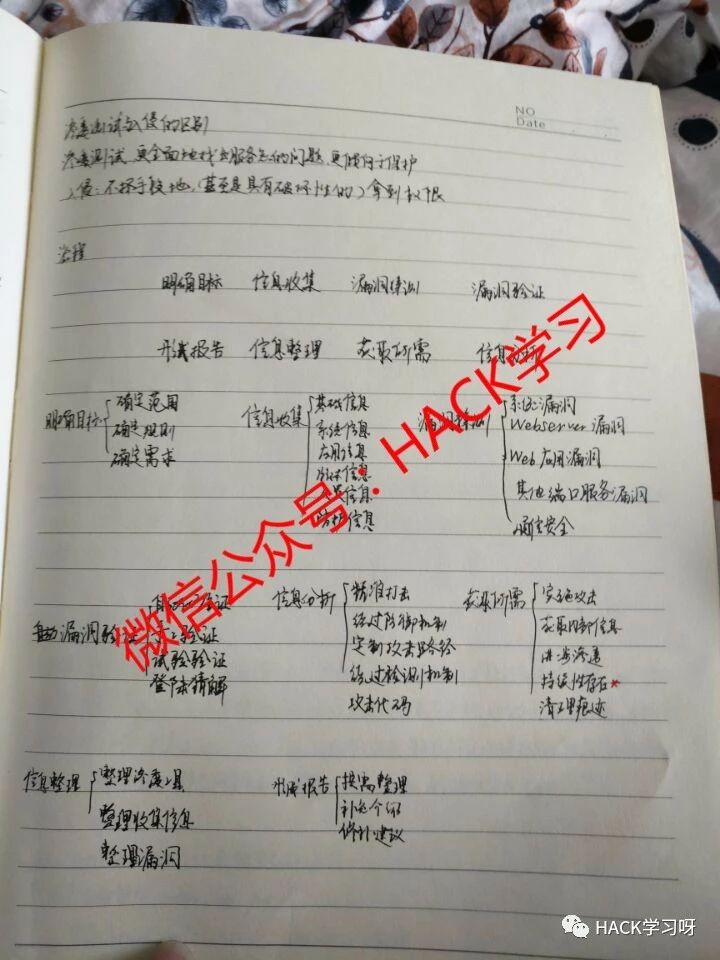 NO
Date
渗透测试与入侵的区别
渗透测试 更全面地找出服务器的问题,更倾向于保护
入侵:不择手段地,(甚至是具有破坏性的)拿到权限
流程
明确目标 信息收集 漏洞探测 漏洞验证
形成报告 信息整理 获取所需 信息分析
明确目标 确定范围
确定规则
确定需求
信息收集 基础信息
系统信息
应用信息
版本信息
人员信息
防护信息
漏洞探测 系统漏洞
Webserver漏洞
Web应用漏洞
其他端口服务漏洞
通信安全
自动 漏洞验证 自动化验证
手工验证
试验验证
登陆猜解
信息分析 精准打击
绕过防御机制
定制攻击路径
绕过检测机制
攻击代码
获取所需 实施攻击
获取内部信息
进一步渗透
持续性存在×
清理痕迹
信息整理 整理渗透工具
整理收集信息
整理漏洞
形成报告 按需整理
补充介绍
修补建议
微信公众号:HACK学习
HACK学习呀